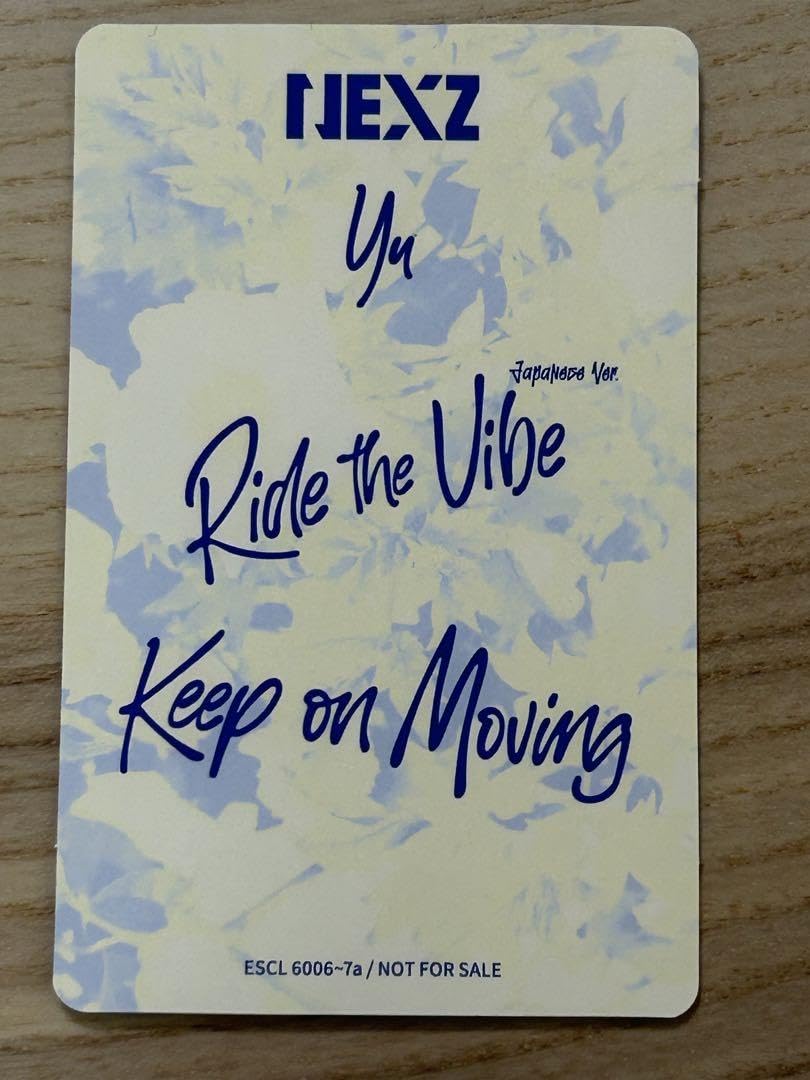 NEXZ
Yu
Japanese Ver.
Ride the Vibe
Keep on Moving
ESCL 6006~7a / NOT FOR SALE